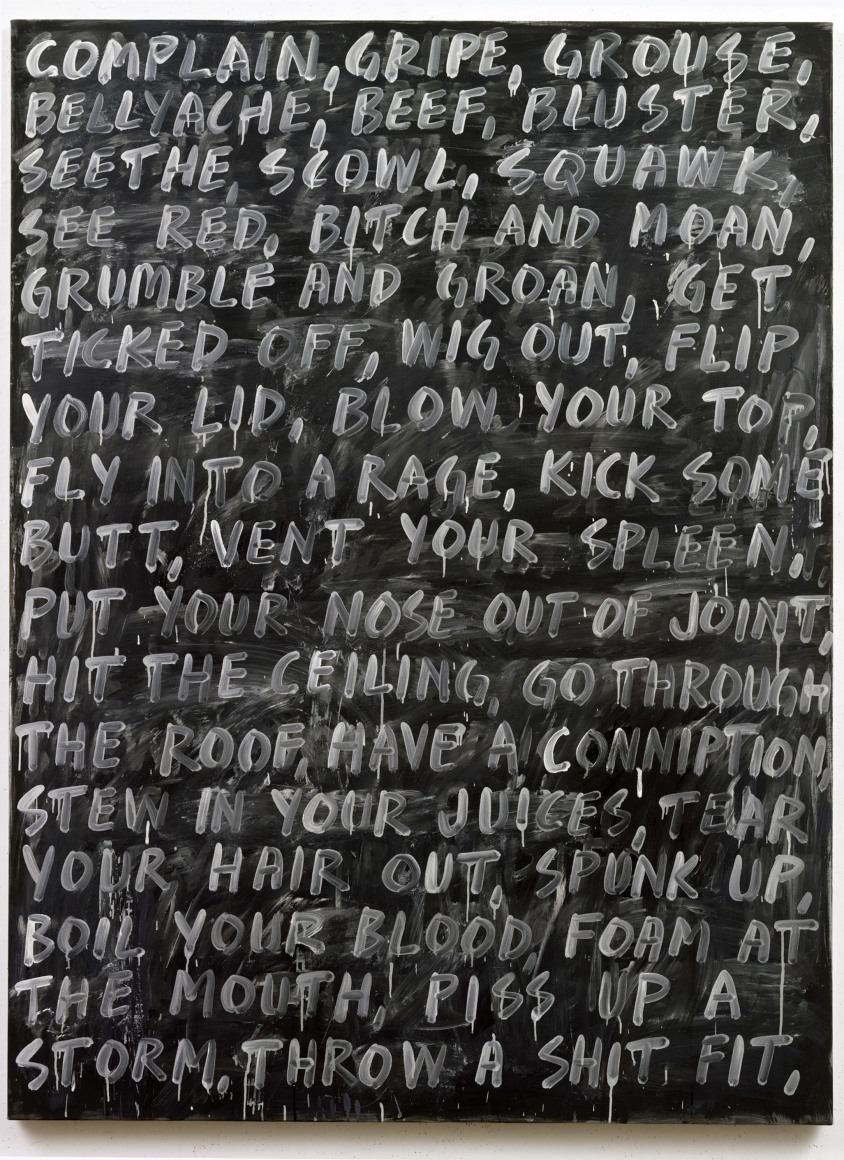 COMPLAIN, GRIPE, GROUSE,
BELLYACHE, BEEF, BLUSTER,
SEETHE, SCOWL, SQUAWK,
SEE RED, BITCH AND MOAN,
GRUMBLE AND GROAN, GET
TICKED OFF, WIG OUT, FLIP
YOUR LID, BLOW YOUR TOP,
FLY INTO A RAGE, KICK SOME
BUTT, VENT YOUR SPLEEN,
PUT YOUR NOSE OUT OF JOINT,
HIT THE CEILING, GO THROUGH
THE ROOF, HAVE A CONNIPTION,
STEW IN YOUR JUICES, TEAR
YOUR HAIR OUT, SPUNK UP,
BOIL YOUR BLOOD, FOAM AT
THE MOUTH, PISS UP A
STORM, THROW A SHIT FIT,